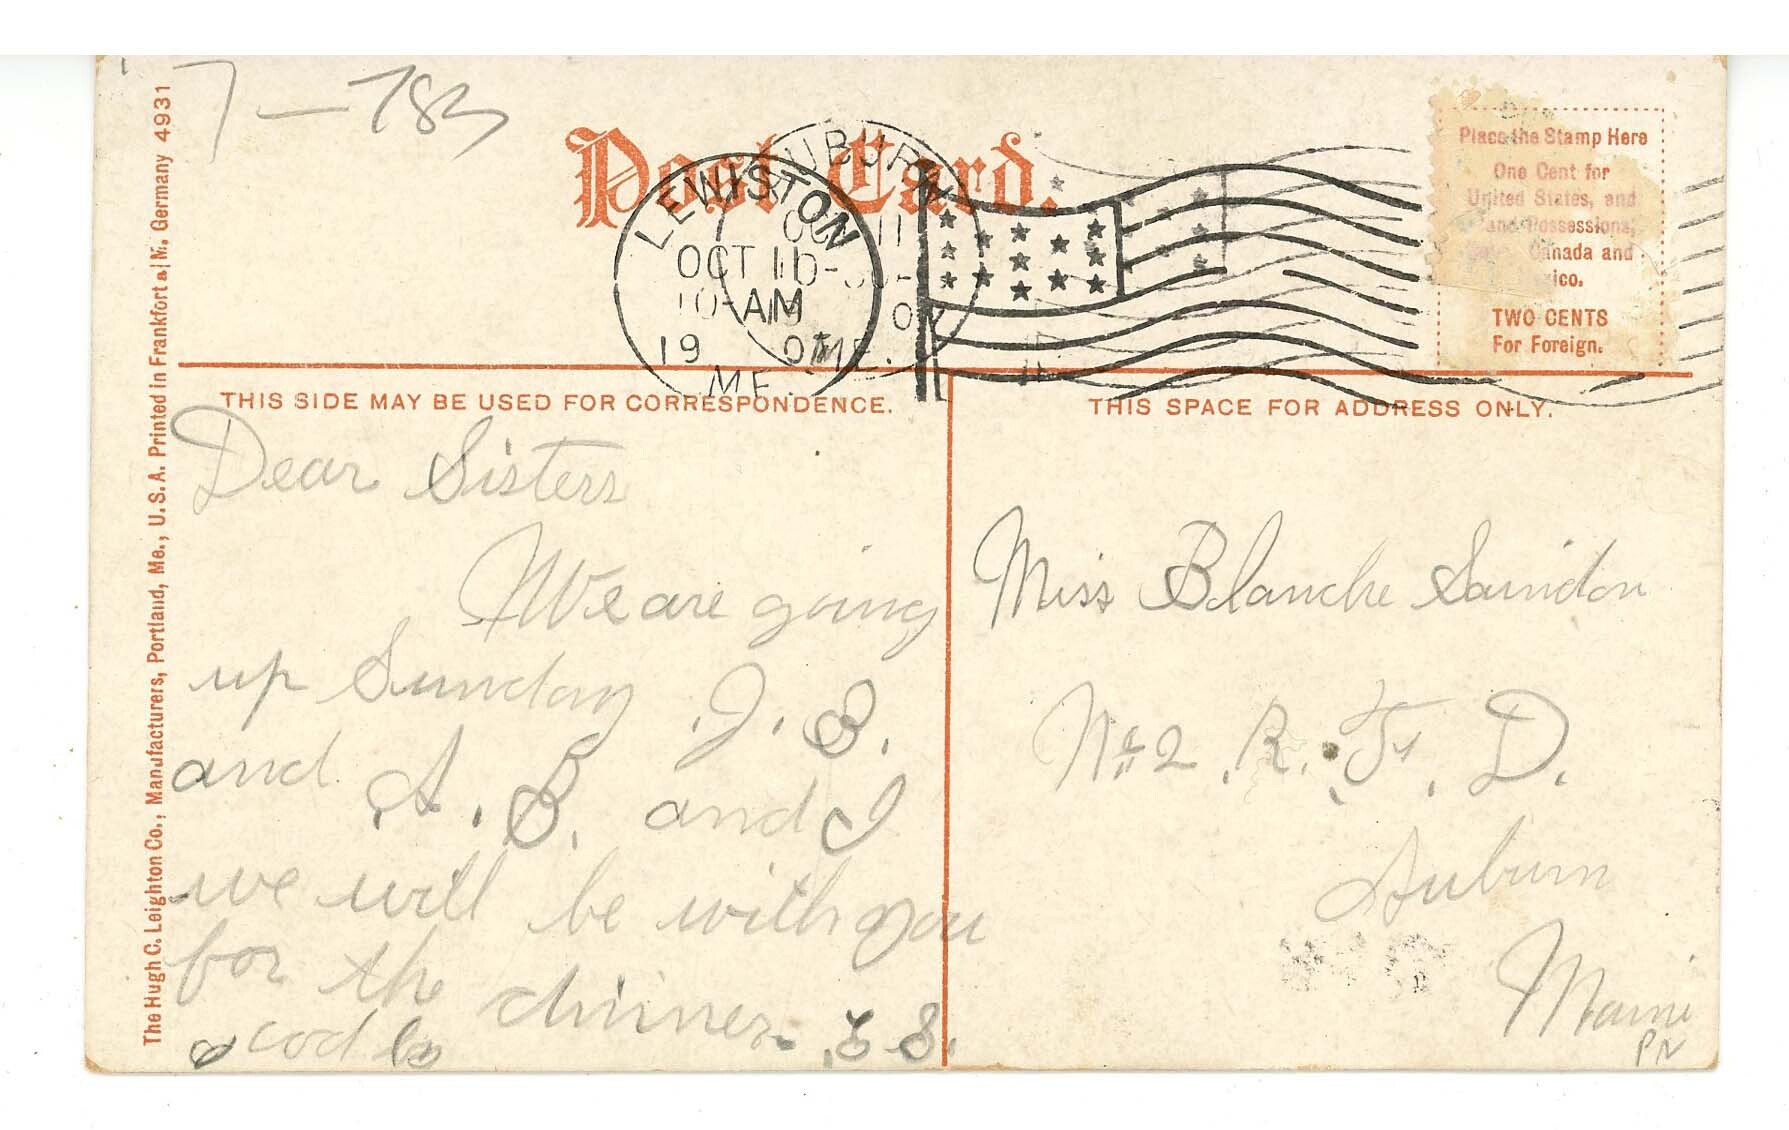 7-783
Post Card.
LEWISTON
OCT 11
10-AM
19
ME.
AUBURN
ME.
Place the Stamp Here
One Cent for
United States, and
Possessions,
Canada and
TWO CENTS
For Foreign.
The Hugh C. Leighton Co., Manufacturers, Portland, Me., U.S.A. Printed in Frankfort a/M. Germany 4931
THIS SIDE MAY BE USED FOR CORRESPONDENCE.
Dear Sisters
We are going
up Sunday J. S.
and A. B. and I
we will be with you
for the dinner
S.
THIS SPACE FOR ADDRESS ONLY.
Miss Blanche Saindon
No 2 R. F. D.
Auburn
Maine